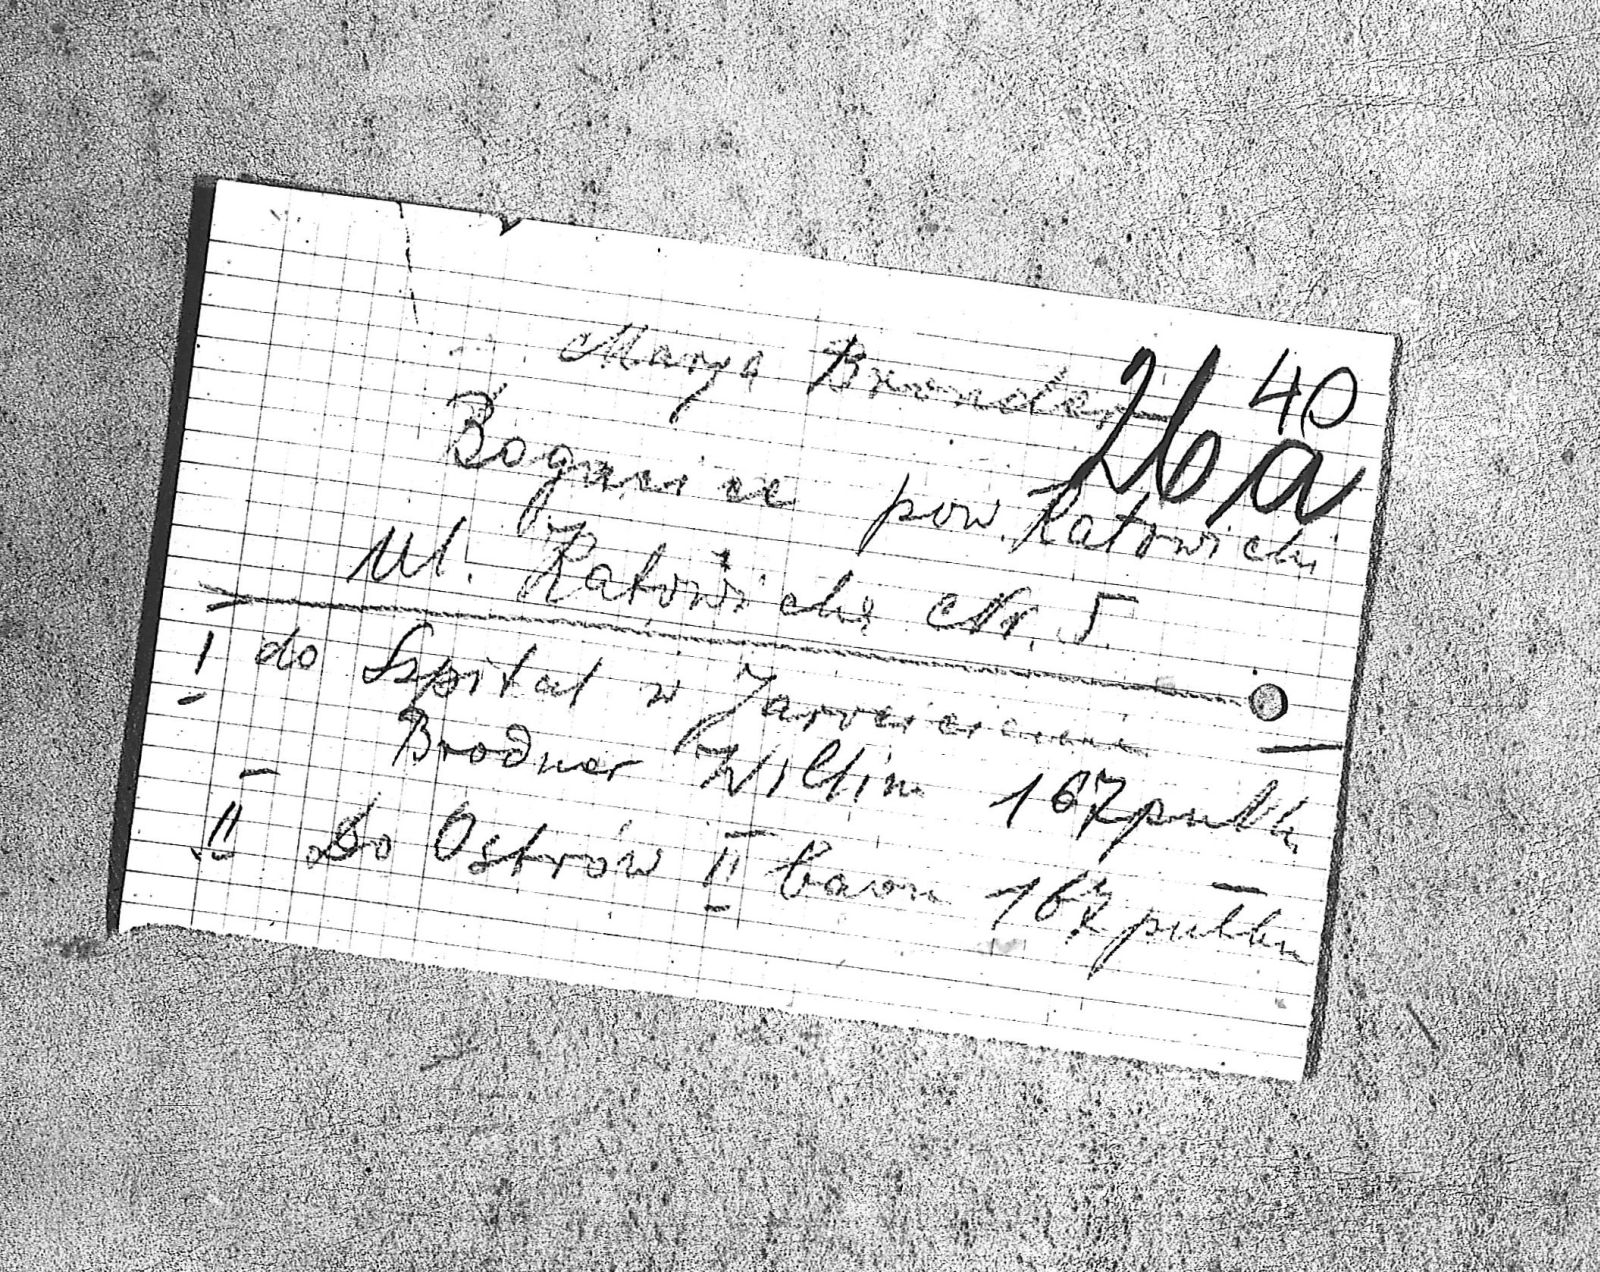 40
26a
Marya Bronder
Bogucice pow. Katowicki
ul. Katowicka Nr. 5.
I do Szpital w
Brodner Wiltim 167 pulku
II Do Ostrów II baon 167 pulku